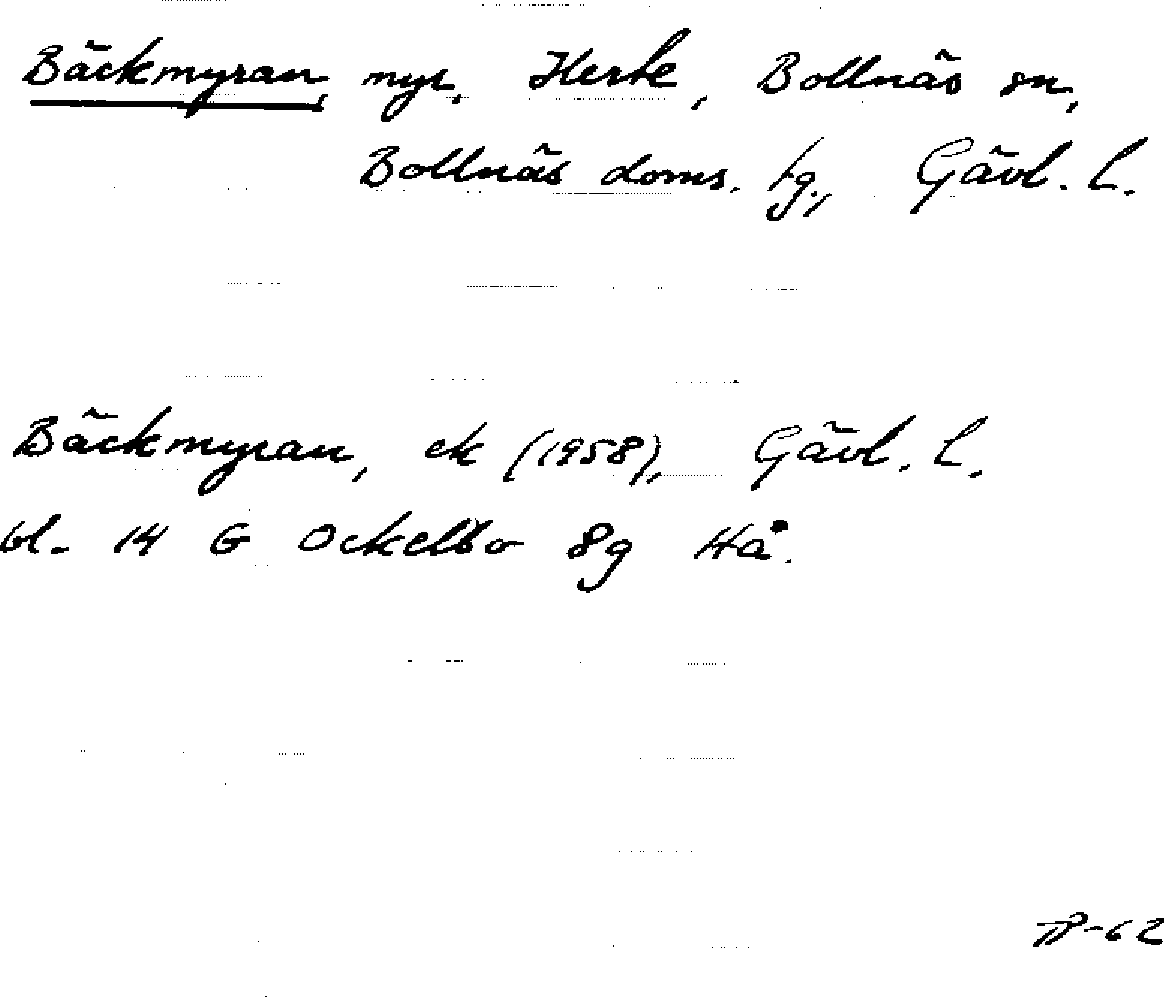 Bäckmyran, myr, Herte, Bollnäs sn,
Bollnäs doms. tg., Gävl. l.
Bäckmyran, ek (1958), Gävl. l.
bl. 14 G Ockelbo 8g Hå.
TP-62